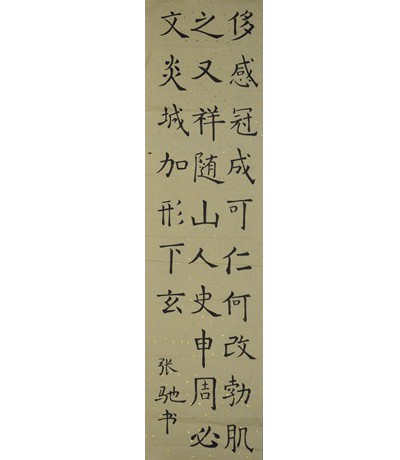 侈感冠成可仁何改勃肌
之又祥随山人史申周必
文炎城加形下玄
张驰书